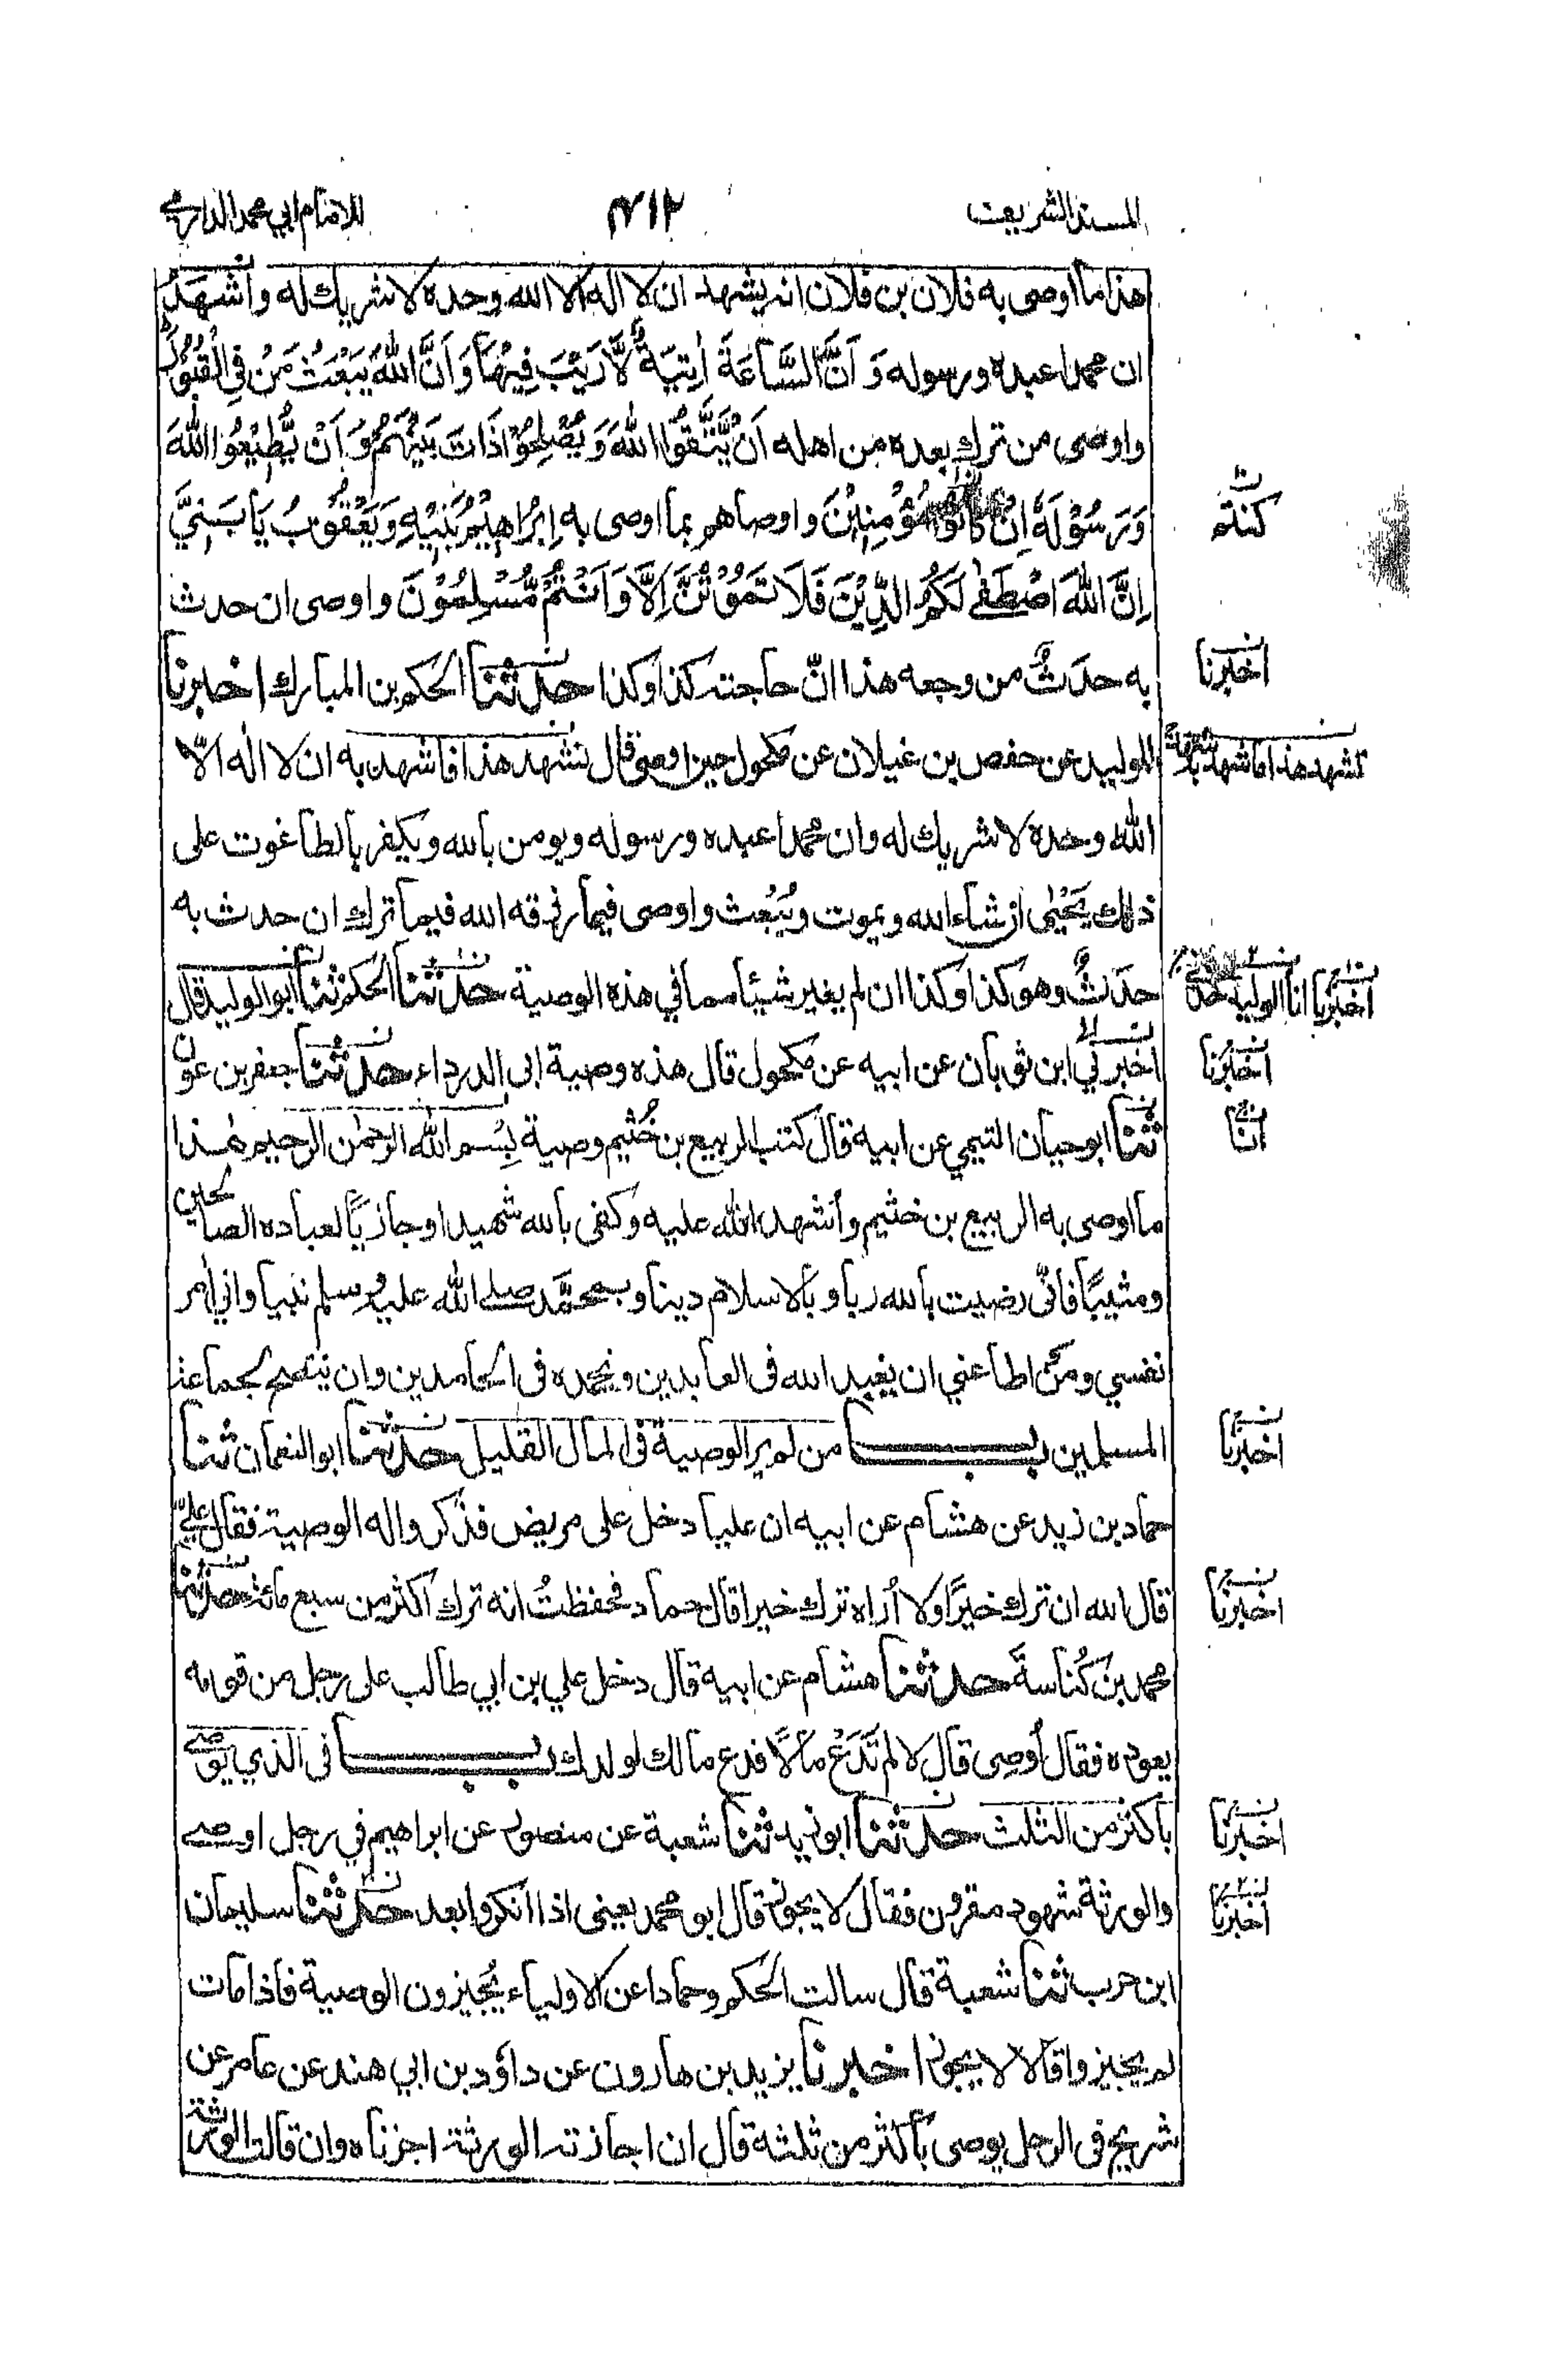 المسند الشريف ٤١٢ للامام ابي محمد الدارمي
هذا ما اوصى به فلان بن فلان انه يشهد ان لا اله الا الله وحده لا شريك له واشهد
ان محمدا عبده ورسوله وَ اَنَّ السَّاعَةَ اٰتِيَةٌ لَّا رَيْبَ فِيْهَا وَاَنَّ اللّٰهَ يَبْعَثُ مَنْ فِي الْقُبُوْرِ
واوصى من ترك بعده من اهله اَنْ يَّتَّقُوا اللّٰهَ وَ يُصْلِحُوْا ذَاتَ بَيْنِهِمْ وَ اَنْ يُّطِيْعُوا اللّٰهَ
وَرَسُوْلَهٗ اِنْ كَانُوْا مُؤْمِنِيْنَ واوصاهم بما اوصى به اِبْرَاهِيْمُ بَنِيْهِ وَيَعْقُوْبُ يَا بَنِيَّ
كنتم
اِنَّ اللّٰهَ اصْطَفٰى لَكُمُ الدِّيْنَ فَلَا تَمُوْتُنَّ اِلَّا وَاَنْتُمْ مُّسْلِمُوْنَ واوصى ان حدث
به حدَثٌ من وجعه هذا انّ حاجته كذا وكذا حدثنا الحكم بن المبارك اخبرنا
اخبرنا
الوليد عن حفص بن غيلان عن مكحول حين اوصى قال نشهد هذا فاشهد به ان لا اله الّا
تشهد هذا فاشهد
الله وحده لا شريك له وان محمدا عبده ورسوله ويومن بالله ويكفر بالطاغوت على
ذلك يَحْيٰى ان شاء الله ويموت ويُبْعث واوصى فيما رزقه الله فيما ترك ان حدث به
حدَثٌ وهو كذا وكذا ان لم يغير شيئا مما في هذه الوصية حدثنا الحكم ثنا ابو الوليد قال
اخبرنا انا الوليد
اخبرني ابن ثوبان عن ابيه عن مكحول قال هذه وصية ابى الدرداء حدثنا جعفر بن عون
اخبرنا
ثنا ابو حيان التيمي عن ابيه قال كتب الربيع بن خُثيم وصية بِسْم الله الرحمٰن الرحيم هٰذا
انا
ما اوصى به الربيع بن خثيم وأشهد الله عليه وكفى بالله شهيدا وجازيًا لعباده الصالحين
ومثيبًا فانّى رضيت بالله ربا وبالاسلام دينا وبمحمَّد صلى الله عليه وسلم نبيا وانى اٰمر
نفسي ومَن اطاعني ان يعبد الله فى العابدين ونحمده فى الحامدين وان ينصح لجماعة
المسلمين باب من لم ير الوصية فى المال القليل حدثنا ابو النعمان ثنا
اخبرنا
حماد بن زيد عن هشام عن ابيه ان عليا دخل على مريض فذكروا له الوصية فقال عليّ
قال الله ان ترك خيرًا ولا أراه ترك خيرا قال حماد فحفظتُ انه ترك اكثر من سبع مائة حدثنا
اخبرنا
محمد بن كُناسةَ حدثنا هشام عن ابيه قال دخل علي بن ابي طالب على رجل من قومه
يعوده فقال أوصِى قال لا لم تَدَعْ مالًا فدع مالك لولدك باب فى الذي يوصى
باكثر من الثلث حدثنا ابو زيد ثنا شعبة عن منصور عن ابراهيم في رجل اوصى
اخبرنا
والورثة شهود مقرون فقال لا يجوز قال ابو محمد يعنى اذا انكروا بعد حدثنا سليمان
اخبرنا
ابن حرب ثنا شعبة قال سالت الحكم وحمادا عن الاولياء يُجيزون الوصية فاذا مات
لم يجيزوا قالا لا يجوز اخبرنا يزيد بن هارون عن داؤد بن ابي هند عن عامر عن
شريح فى الرجل يوصى باكثر من ثلثه قال ان اجازته الورثة اجزناه وان قالت الورثة